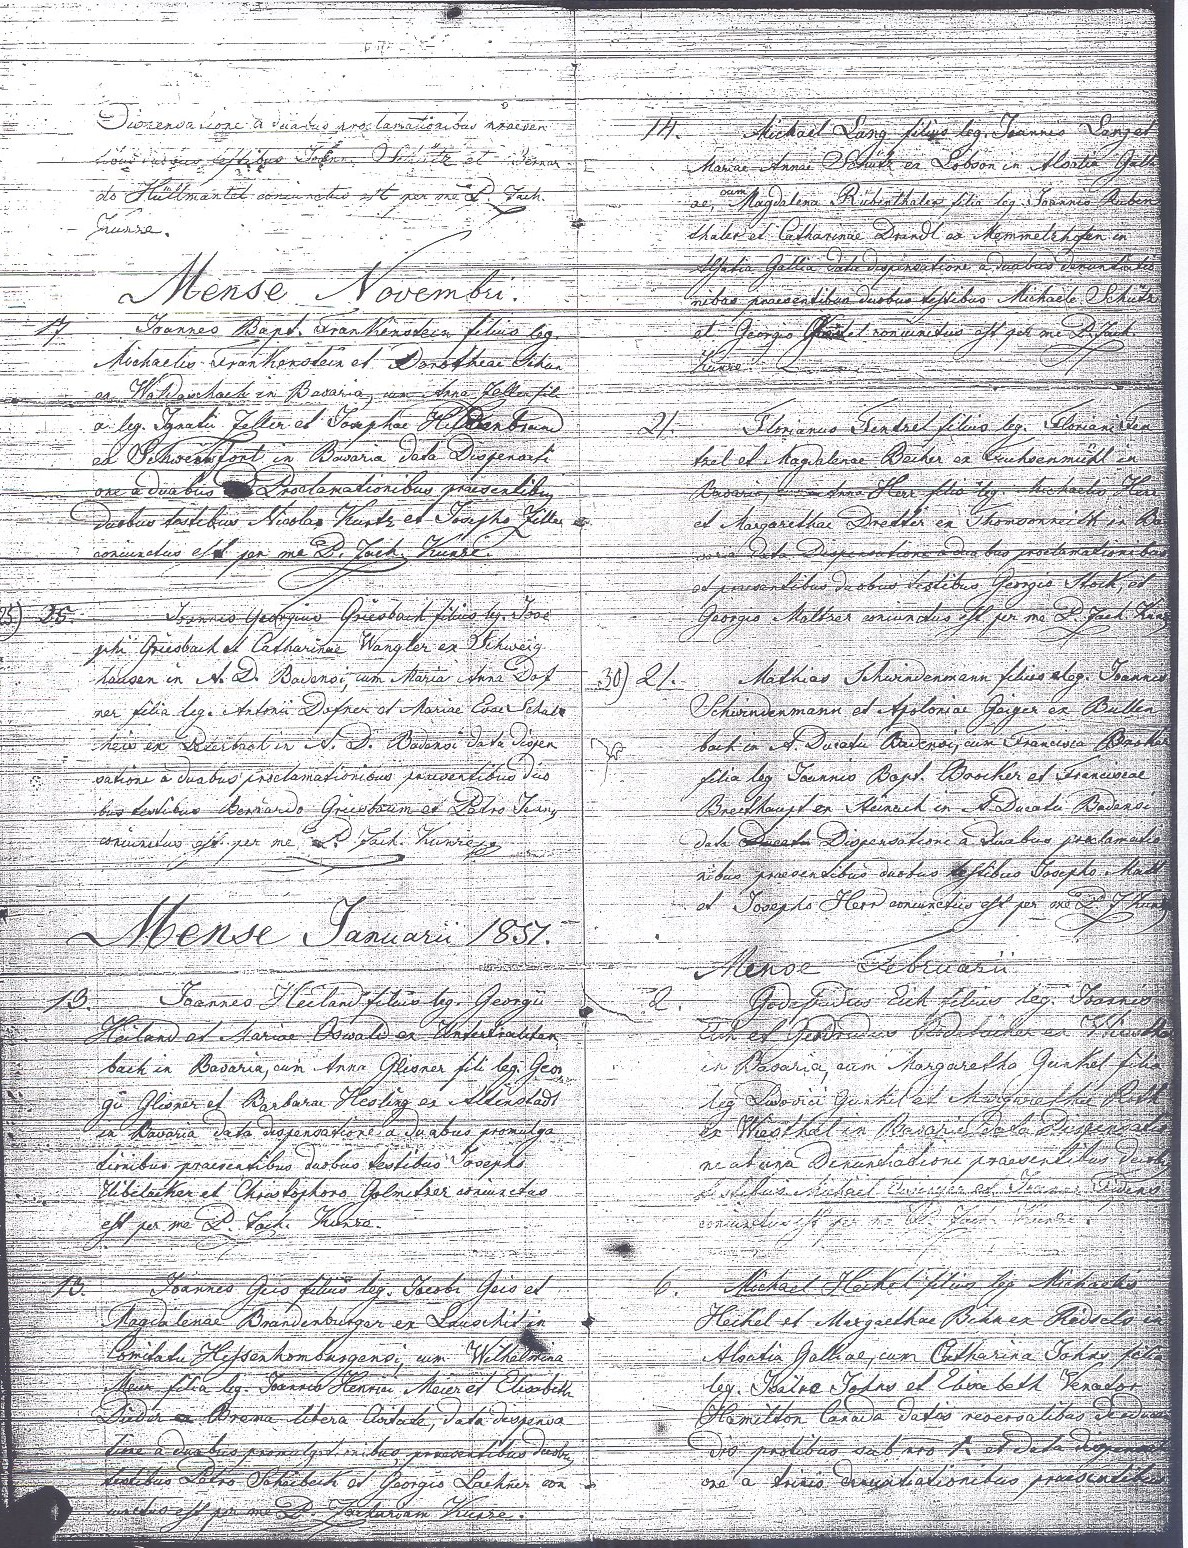 Dispensatione a duabus proclamationibus praesen
tibus duobus testibus Joann. et Bernar
do Hüttmantel coniunctus est per me P. Zach.
Kunze.
Mense Novembri.
17. Joannes Bapt. Frankenstein filius leg.
Michaelis Frankenstein et Dorotheae Schun
ex Waldaschach in Bavaria, cum Anna Zeller fili
a leg. Ignatii Zeller et Josephae Hildenbrand
ex Schweinfort in Bavaria data Dispensati
one a duabus Proclamationibus praesentibus
duobus testibus Nicolao Kuntz et Josepho Zeller
coniunctus est per me P. Zach. Kunze.
25) 25. Joannes Georgius Griesbach filius leg. Jose
phi Griesbach et Catharinae Wangler ex Schweig
hausen in M. D. Badensi, cum Maria Anna Dof
ner filia leg. Antonii Dofner et Mariae Evae Schul
heis ex in M. D. Badensi data dispen
satione a duabus proclamationibus praesentibus duo
bus testibus Bernardo Griesbaum et Petro Jenny
coniunctus est per me P. Zach. Kunze
Mense Januarii 1857.
13. Joannes Heiland filius leg. Georgii
Heiland et Mariae Oswald ex
bach in Bavaria, cum Anna Glisner fili leg. Geor
gii Glisner et Barbarae Hesling ex Altenstadt
in Bavaria data dispensatione a duabus promulga
tionibus praesentibus duobus testibus Josepho
Uibelacker et Christophoro Golmitzer coniunctus
est per me P. Zach. Kunze.
13. Joannes Geis filius leg. Jacobi Geis et
Magdalenae Brandenburger ex Lauschit in
Comitatu Hessenhomburgensi, cum Wilhelmina
Meier filia leg. Joannis Henrici Meier et Elisabeth
ex Brema libera Civitate, data dispensa
tione a duabus promulgationibus, praesentibus duobus
testibus Petro Scheibach et Georgio Lachner con
iunctus est per me P. Zachariam Kunze.
14. Michael Lang filius leg. Joannis Lang et
Mariae Annae Schütz ex Lobson in Alsatia Galli
ae, cum Magdalena Rubenthaler filia leg. Joannis Ruben
thaler et Catharinae Drandl ex Memmelzhofen in
Alsatia Gallia data dispensatione a duabus denuntiatio
nibus praesentibus duobus testibus Michaele Schütz
et Georgio coniunctus est per me P. Zach
Kunze.
21. Florianus Fentzel filius leg. Floriani Fen
tzel et Magdalenae Becher ex Fuchsenmühl in
Bavaria, cum Anna Herr filia leg. Michaelis Herr
et Margarethae Dretter ex Thomsenreith in Ba
varia data Dispensatione a duabus proclamationibus
et praesentibus duobus testibus Georgio Stock, et
Georgio Meltzer coniunctus est per me P. Zach. Kunz
30) 21. Mathias Schwindenmann filius leg. Joannis
Schwindenmann et Apoloniae Gaiger ex Bullen
bach in M. Ducatu Badensi, cum Francisca Brocker
filia leg Joannis Bapt. Brocker et Franciscae
Breithaupt ex Steinach in M Ducatu Badensi
data Ducatu Dispensatione a duabus proclamatio
nibus praesentibus duobus testibus Josepho Matt
et Josepho Herr coniunctus est per me P. Z Kunz
Mense Februarii
2. Godefridus Eich filius leg. Joannis
Eich et Gertrudis ex
in Bavaria, cum Margaretha Gunkel filia
leg Ludovici Gunkel et Margarethae Roth
ex Wiesthal in Bavaria data Dispensatio
ne ab una Denuntiatione praesentibus duobus
testibus Michael et
coniunctus est per me P. Zach Kunze.
6. Michael Heckel filius leg Michaelis
Heckel et Margaethae Bihn ex Riedselz in
Alsatia Galliae, cum Catharina Johns filia
leg. Johns et Elisabeth Venador
Hamilton Canada datis reversalibus de educan
dis prolibus sub nro 1. et data dispensati
one a trinis denuntiationibus praesentibus